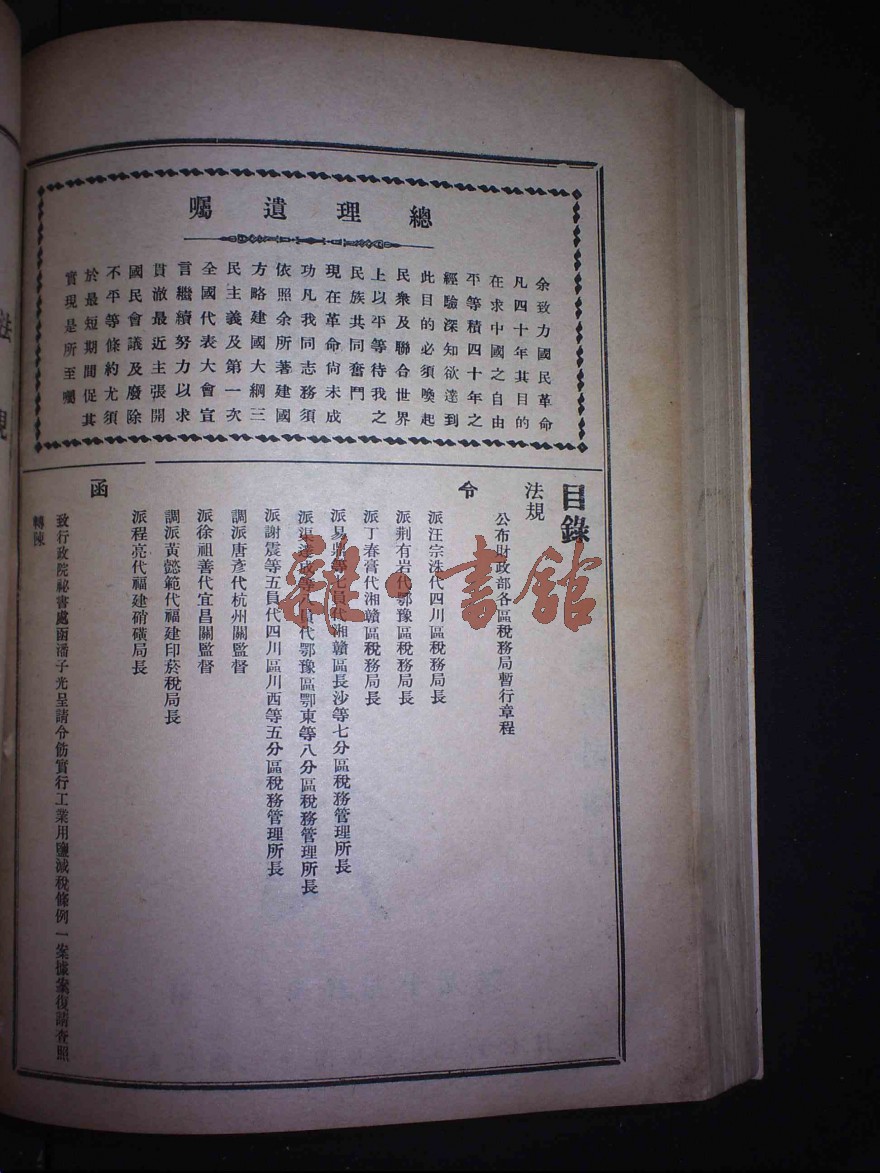 總理遺囑
余致力國民革命
凡四十年其目的
在求中國之自由
平等積四十年之
經驗深知欲達到
此目的必須喚起
民衆及聯合世界
上以平等待我之
民族共同奮鬥
現在革命尚未成
功凡我同志務須
依照余所著建國
方略建國大綱三
民主義及第一次
全國代表大會宣
言繼續努力以求
貫澈最近主張開
國民會議及廢除
不平等條約尤須
於最短期間促其
實現是所至囑
目錄
法規
公布財政部各區稅務局暫行章程
令
派汪宗洙代四川區稅務局長
派荆有岩代鄂豫區稅務局長
派丁春膏代湘贛區稅務局長
派易鼎等七員代湘贛區長沙等七分區稅務管理所長
派渠等八員代鄂豫區鄂東等八分區稅務管理所長
派謝震等五員代四川區川西等五分區稅務管理所長
調派唐彥代杭州關監督
派徐祖善代宜昌關監督
調派黃懿範代福建印菸稅局長
派程亮代福建硝磺局長
函
致行政院祕書處函潘子光呈請令飭實行工業用鹽減稅條例一案據案復請查照
轉陳
雜·書館